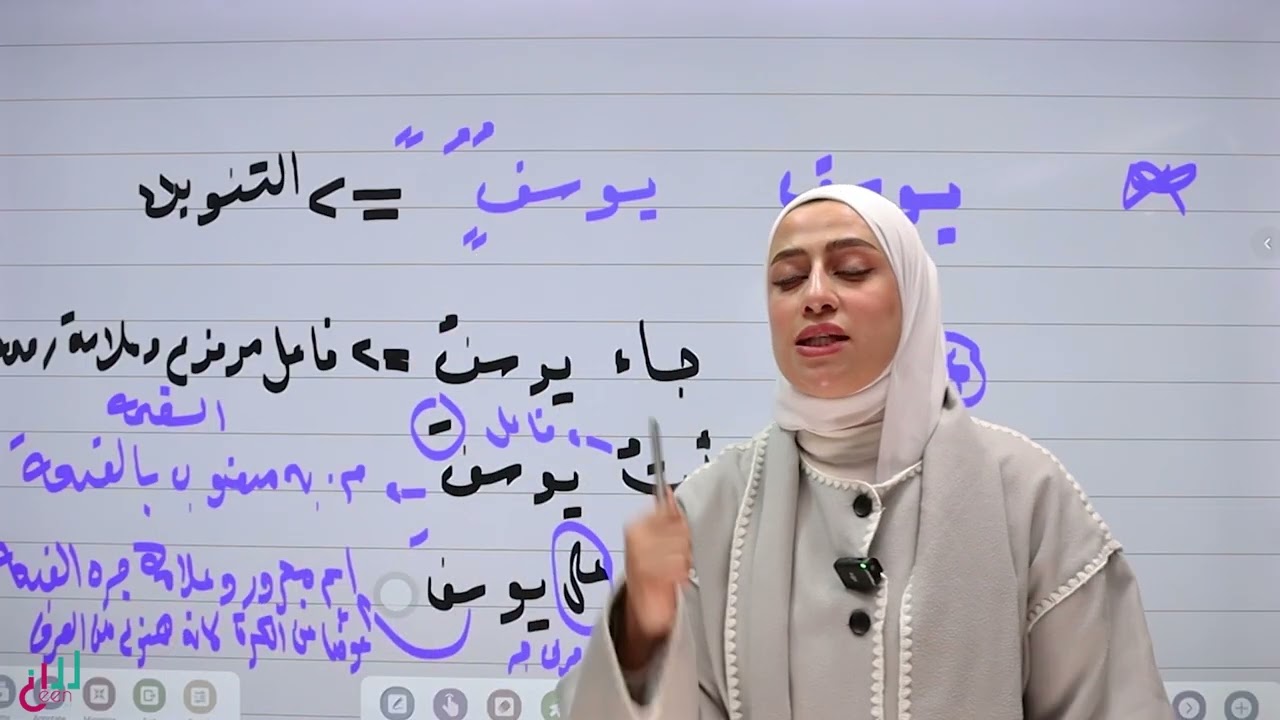 يوسف يوسفٌ => التنوين
جاء يوسفُ => فاعل مرفوع وعلامة رفعه
الضمة
فاعل
يوسف م. به منصوب بالفتحة
على يوسفَ اسم مجرور وعلامة جره الفتحة
عوضًا عن الكسرة لانه ممنوع من الصرف
حرف جر